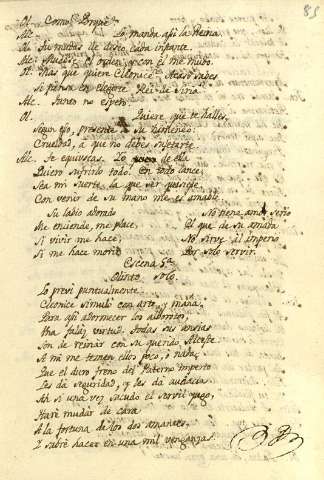 85
Ol. Como? Porque?
Alc. Lo manda asi la Reina
Ol. Tu mudas de diseo cada instante.
Alc. Mudó el orden, y con él me mudo.
Ol. Mas que quiere Cleonice? Acaso sabes
Si piensa en elegirte Rei de Siria?
Alc. Tanto no espero.
Ol. Quiere que te halles,
Segun eso, presente a su himeneo?
Crueldad, à que no debes sujetarte
Alc. Te equivocas. Lo de ella
Quiero sufrirlo todo. En todo lance,
Sea mi suerte la que ser quisiese
Con venir de su mano me es amable
Su labio adorado
Me enciende, me place,
Si vivir me hace,
Si me hace morir
No tiene amor serio
El que de su amada
No sirve al imperio
Por solo servir.
Escena 5.ª
Olinto solo
Lo previ puntualmente.
Cleonice simuló con arte, y maña,
Para asi adormecer los alborotos,
Una falaz virtud. Todas sus ansias
Son de reinar con su querido Alceste
A mi me temen ellos poco, ò nada,
Que el duro freno del Paterno imperio
Les dà seguridad, y les dà audacia
Ah si una vez sacudo el servil yugo,
Haré mudar de cara
A la fortuna de los dos amantes,
Y sabré hacer en una mil venganzas